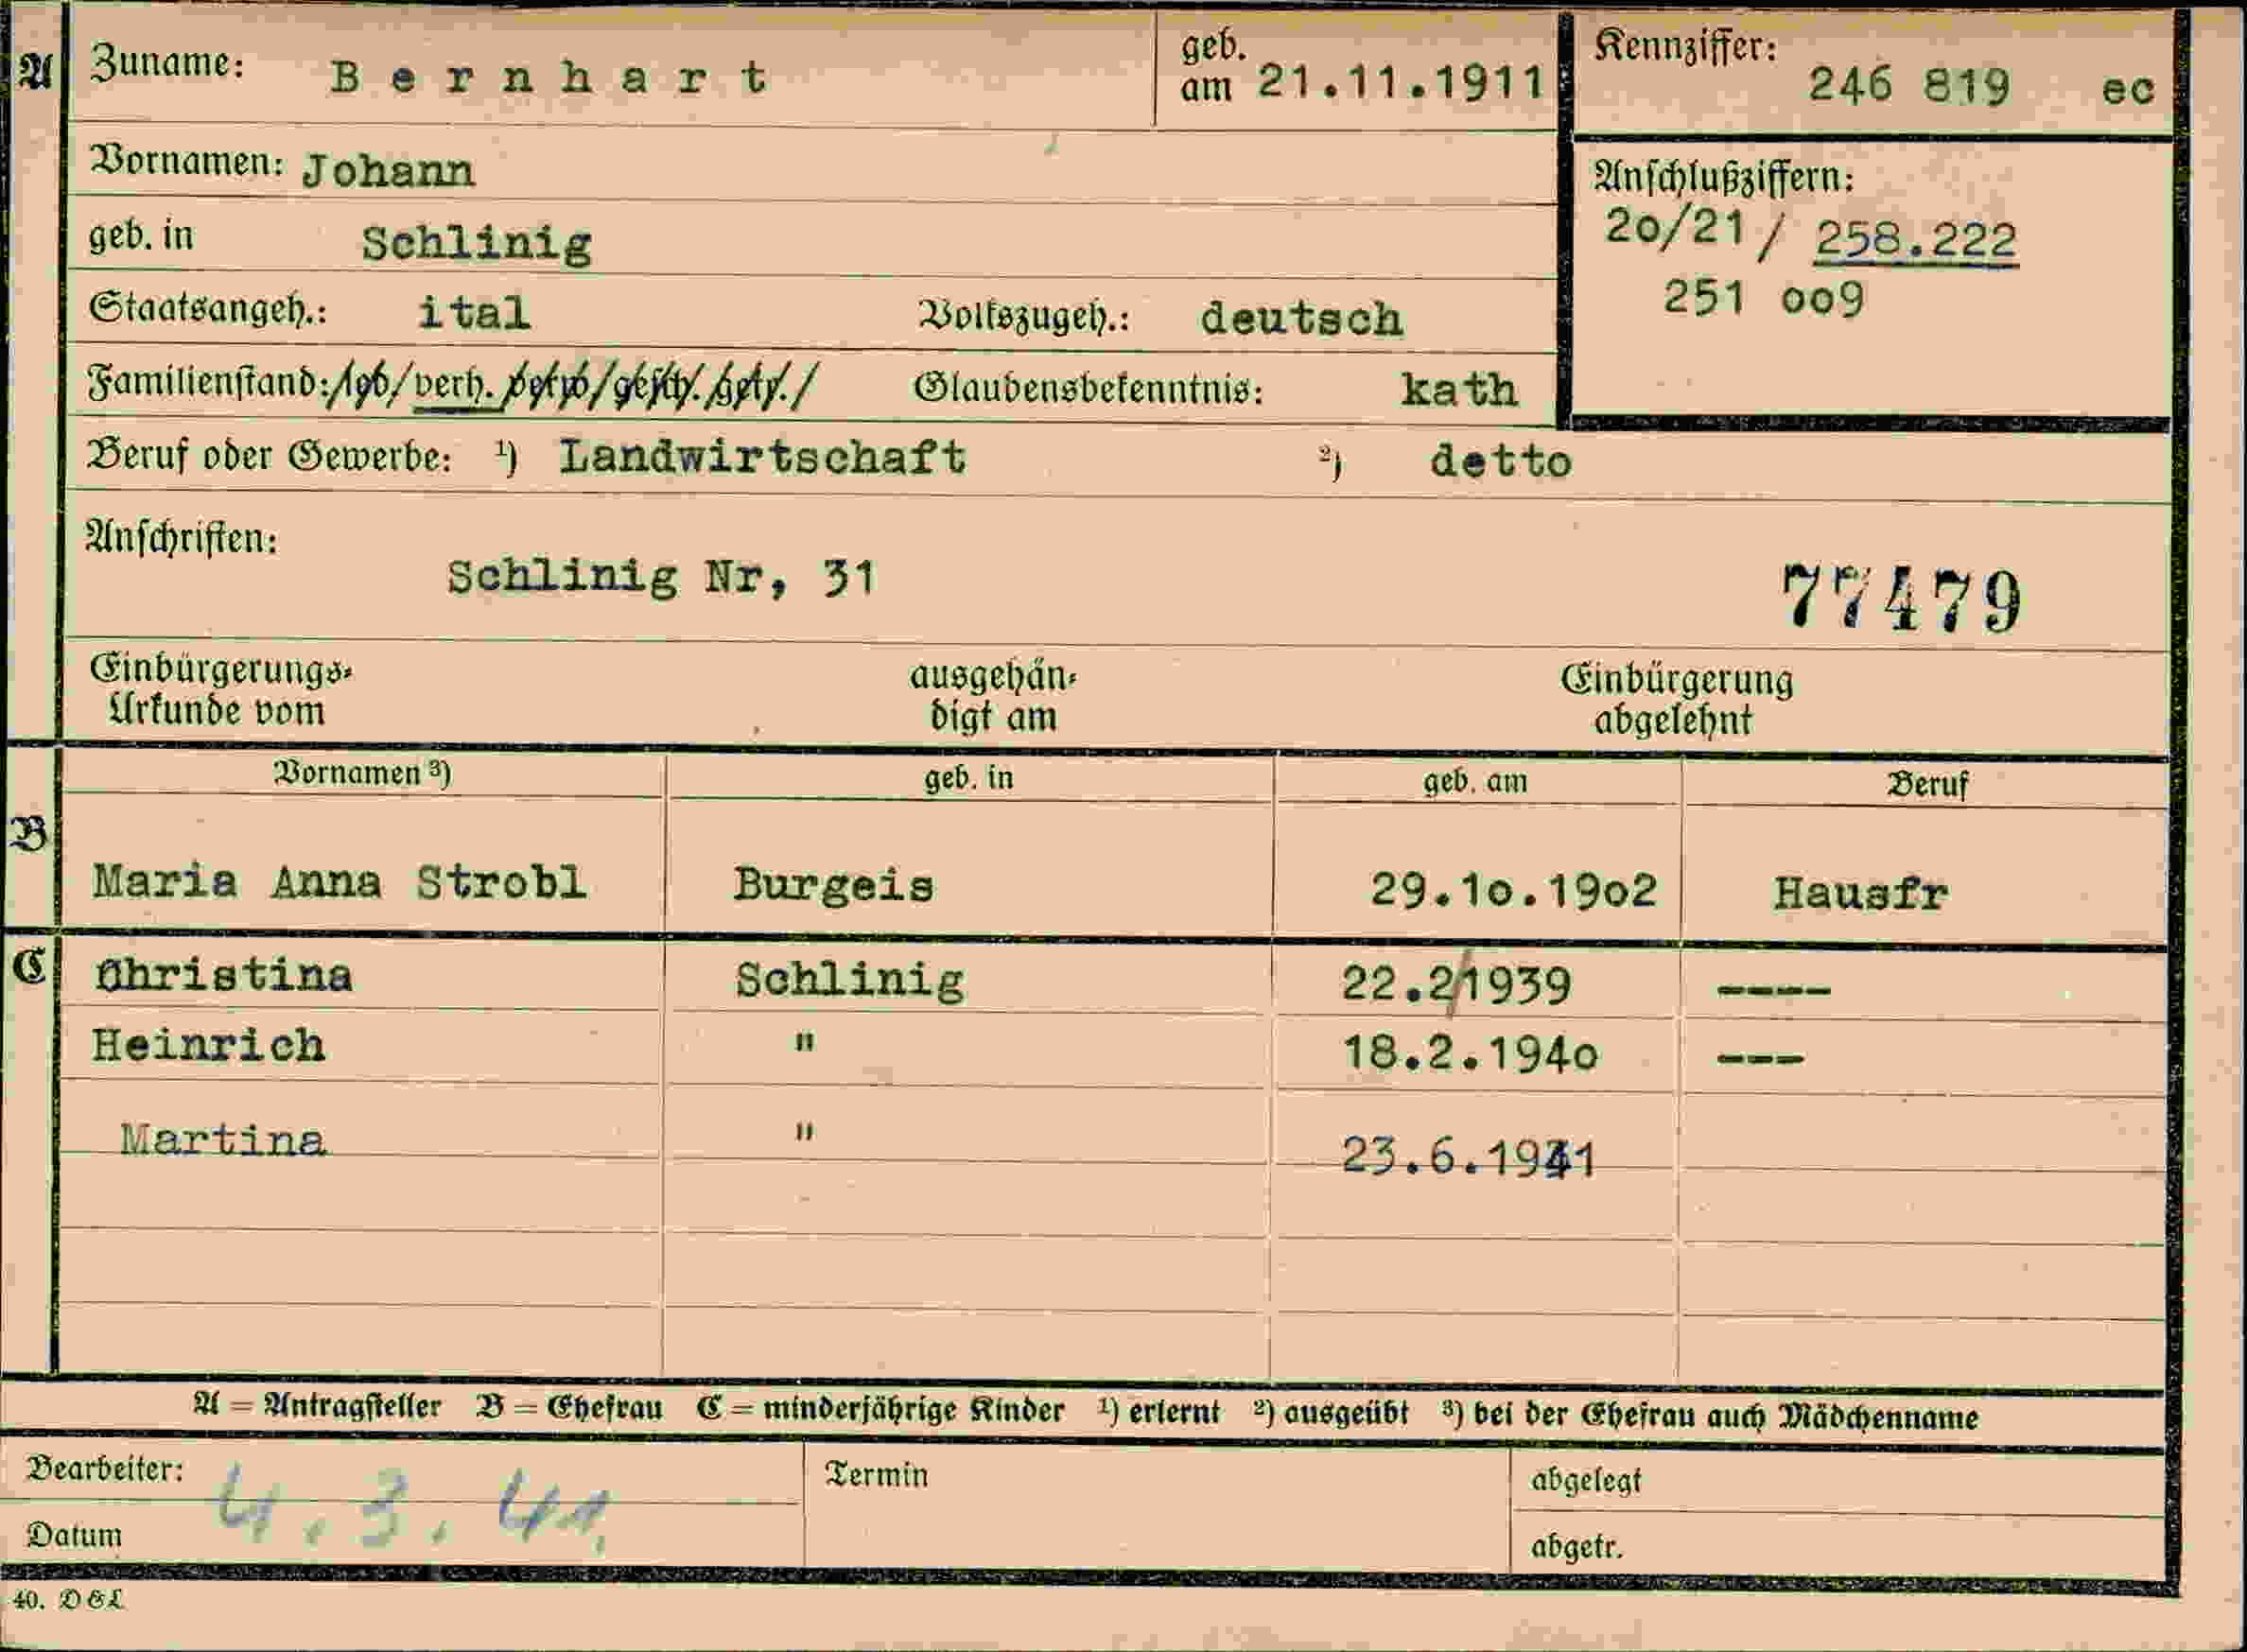 A Zuname: Bernhart geb. am 21.11.1911 Kennziffer: 246 819 ec
Vornamen: Johann
Anschlußziffern:
20/21 / 258.222
251 oo9
geb. in Schlinig
Staatsangeh.: ital Volkszugeh.: deutsch
Familienstand: /led/ verh. /verw/ gesch. /getr./ Glaubensbekenntnis: kath
Beruf oder Gewerbe: ¹) Landwirtschaft ²) detto
Anschriften:
Schlinig Nr, 31
77479
Einbürgerungs-Urkunde vom ausgehändigt am Einbürgerung abgelehnt
Vornamen ³) geb. in geb. am Beruf
B
Maria Anna Strobl Burgeis 29.1o.19o2 Hausfr
C Christina Schlinig 22.2/1939 ----
Heinrich " 18.2.194o ---
Martina " 23.6.1941
A = Antragsteller B = Ehefrau C = minderjährige Kinder ¹) erlernt ²) ausgeübt ³) bei der Ehefrau auch Mädchenname
Bearbeiter: Termin abgelegt
Datum 4.3.41. abgetr.
40. D&L